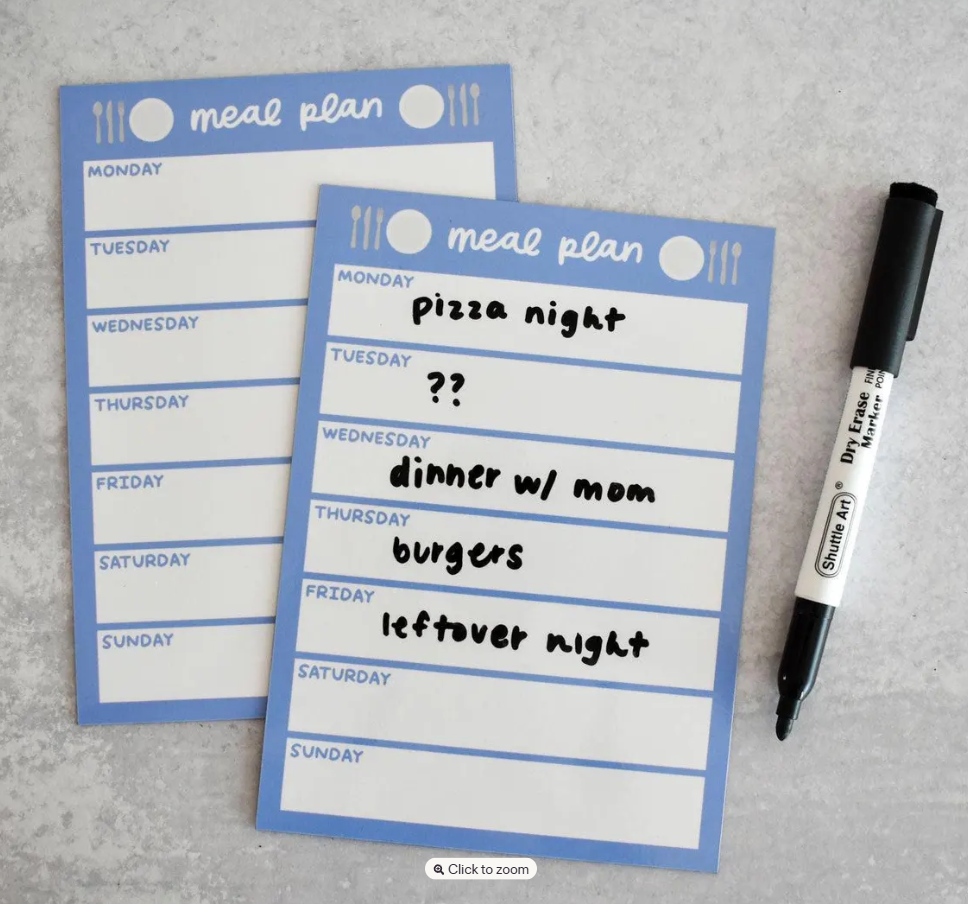 meal plan
MONDAY
TUESDAY
WEDNESDAY
THURSDAY
FRIDAY
SATURDAY
SUNDAY
meal plan
MONDAY
pizza night
TUESDAY
??
WEDNESDAY
dinner w/ mom
THURSDAY
burgers
FRIDAY
leftover night
SATURDAY
SUNDAY
Shuttle Art ®
Dry Erase
Marker
Click to zoom